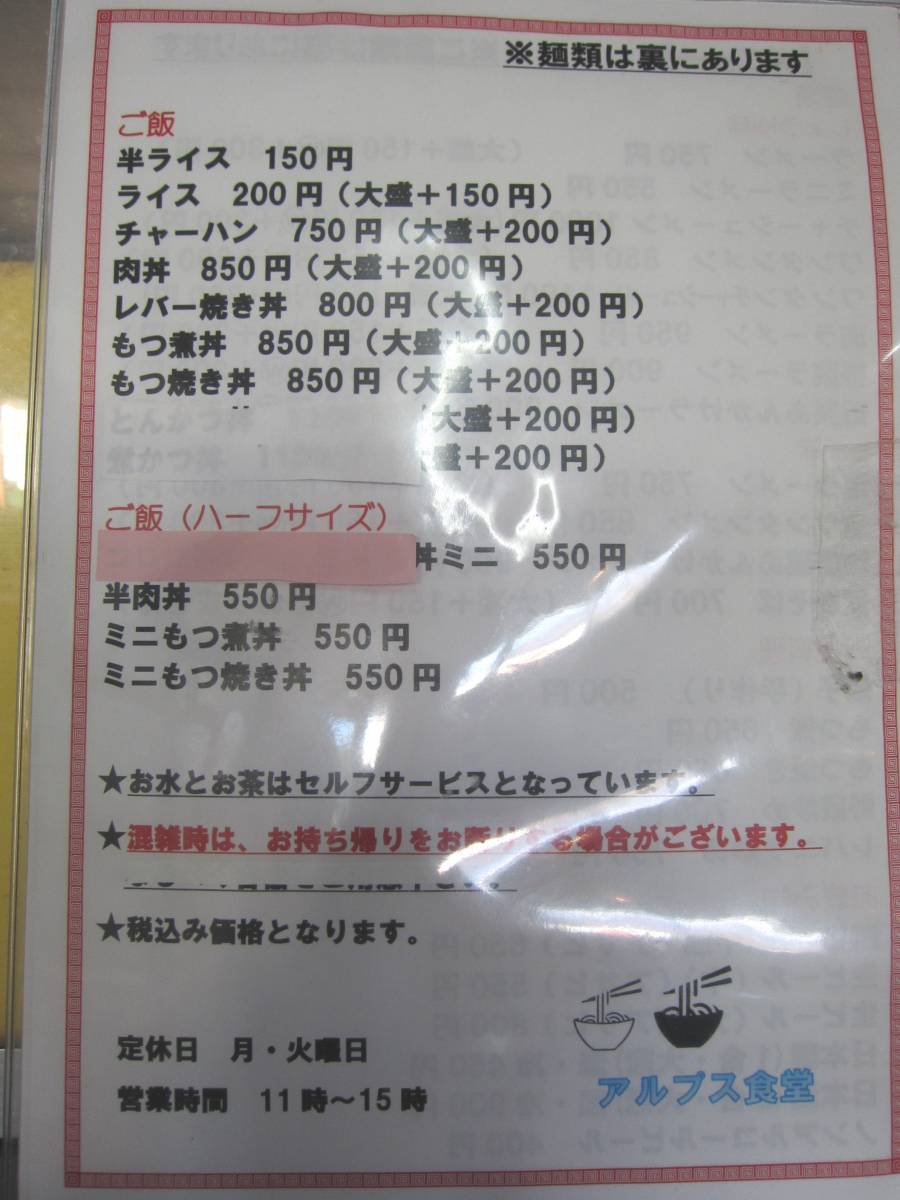 ※麺類は裏にあります
ご飯
半ライス 150円
ライス 200円（大盛＋150円）
チャーハン 750円（大盛＋200円）
肉丼 850円（大盛＋200円）
レバー焼き丼 800円（大盛＋200円）
もつ煮丼 850円（大盛＋200円）
もつ焼き丼 850円（大盛＋200円）
とんかつ丼 （大盛＋200円）
煮かつ丼 盛＋200円）
ご飯（ハーフサイズ）
丼ミニ 550円
半肉丼 550円
ミニもつ煮丼 550円
ミニもつ焼き丼 550円
★お水とお茶はセルフサービスとなっています。
★混雑時は、お持ち帰りをお断りする場合がございます。
★税込み価格となります。
定休日 月・火曜日
営業時間 11時～15時
アルプス食堂